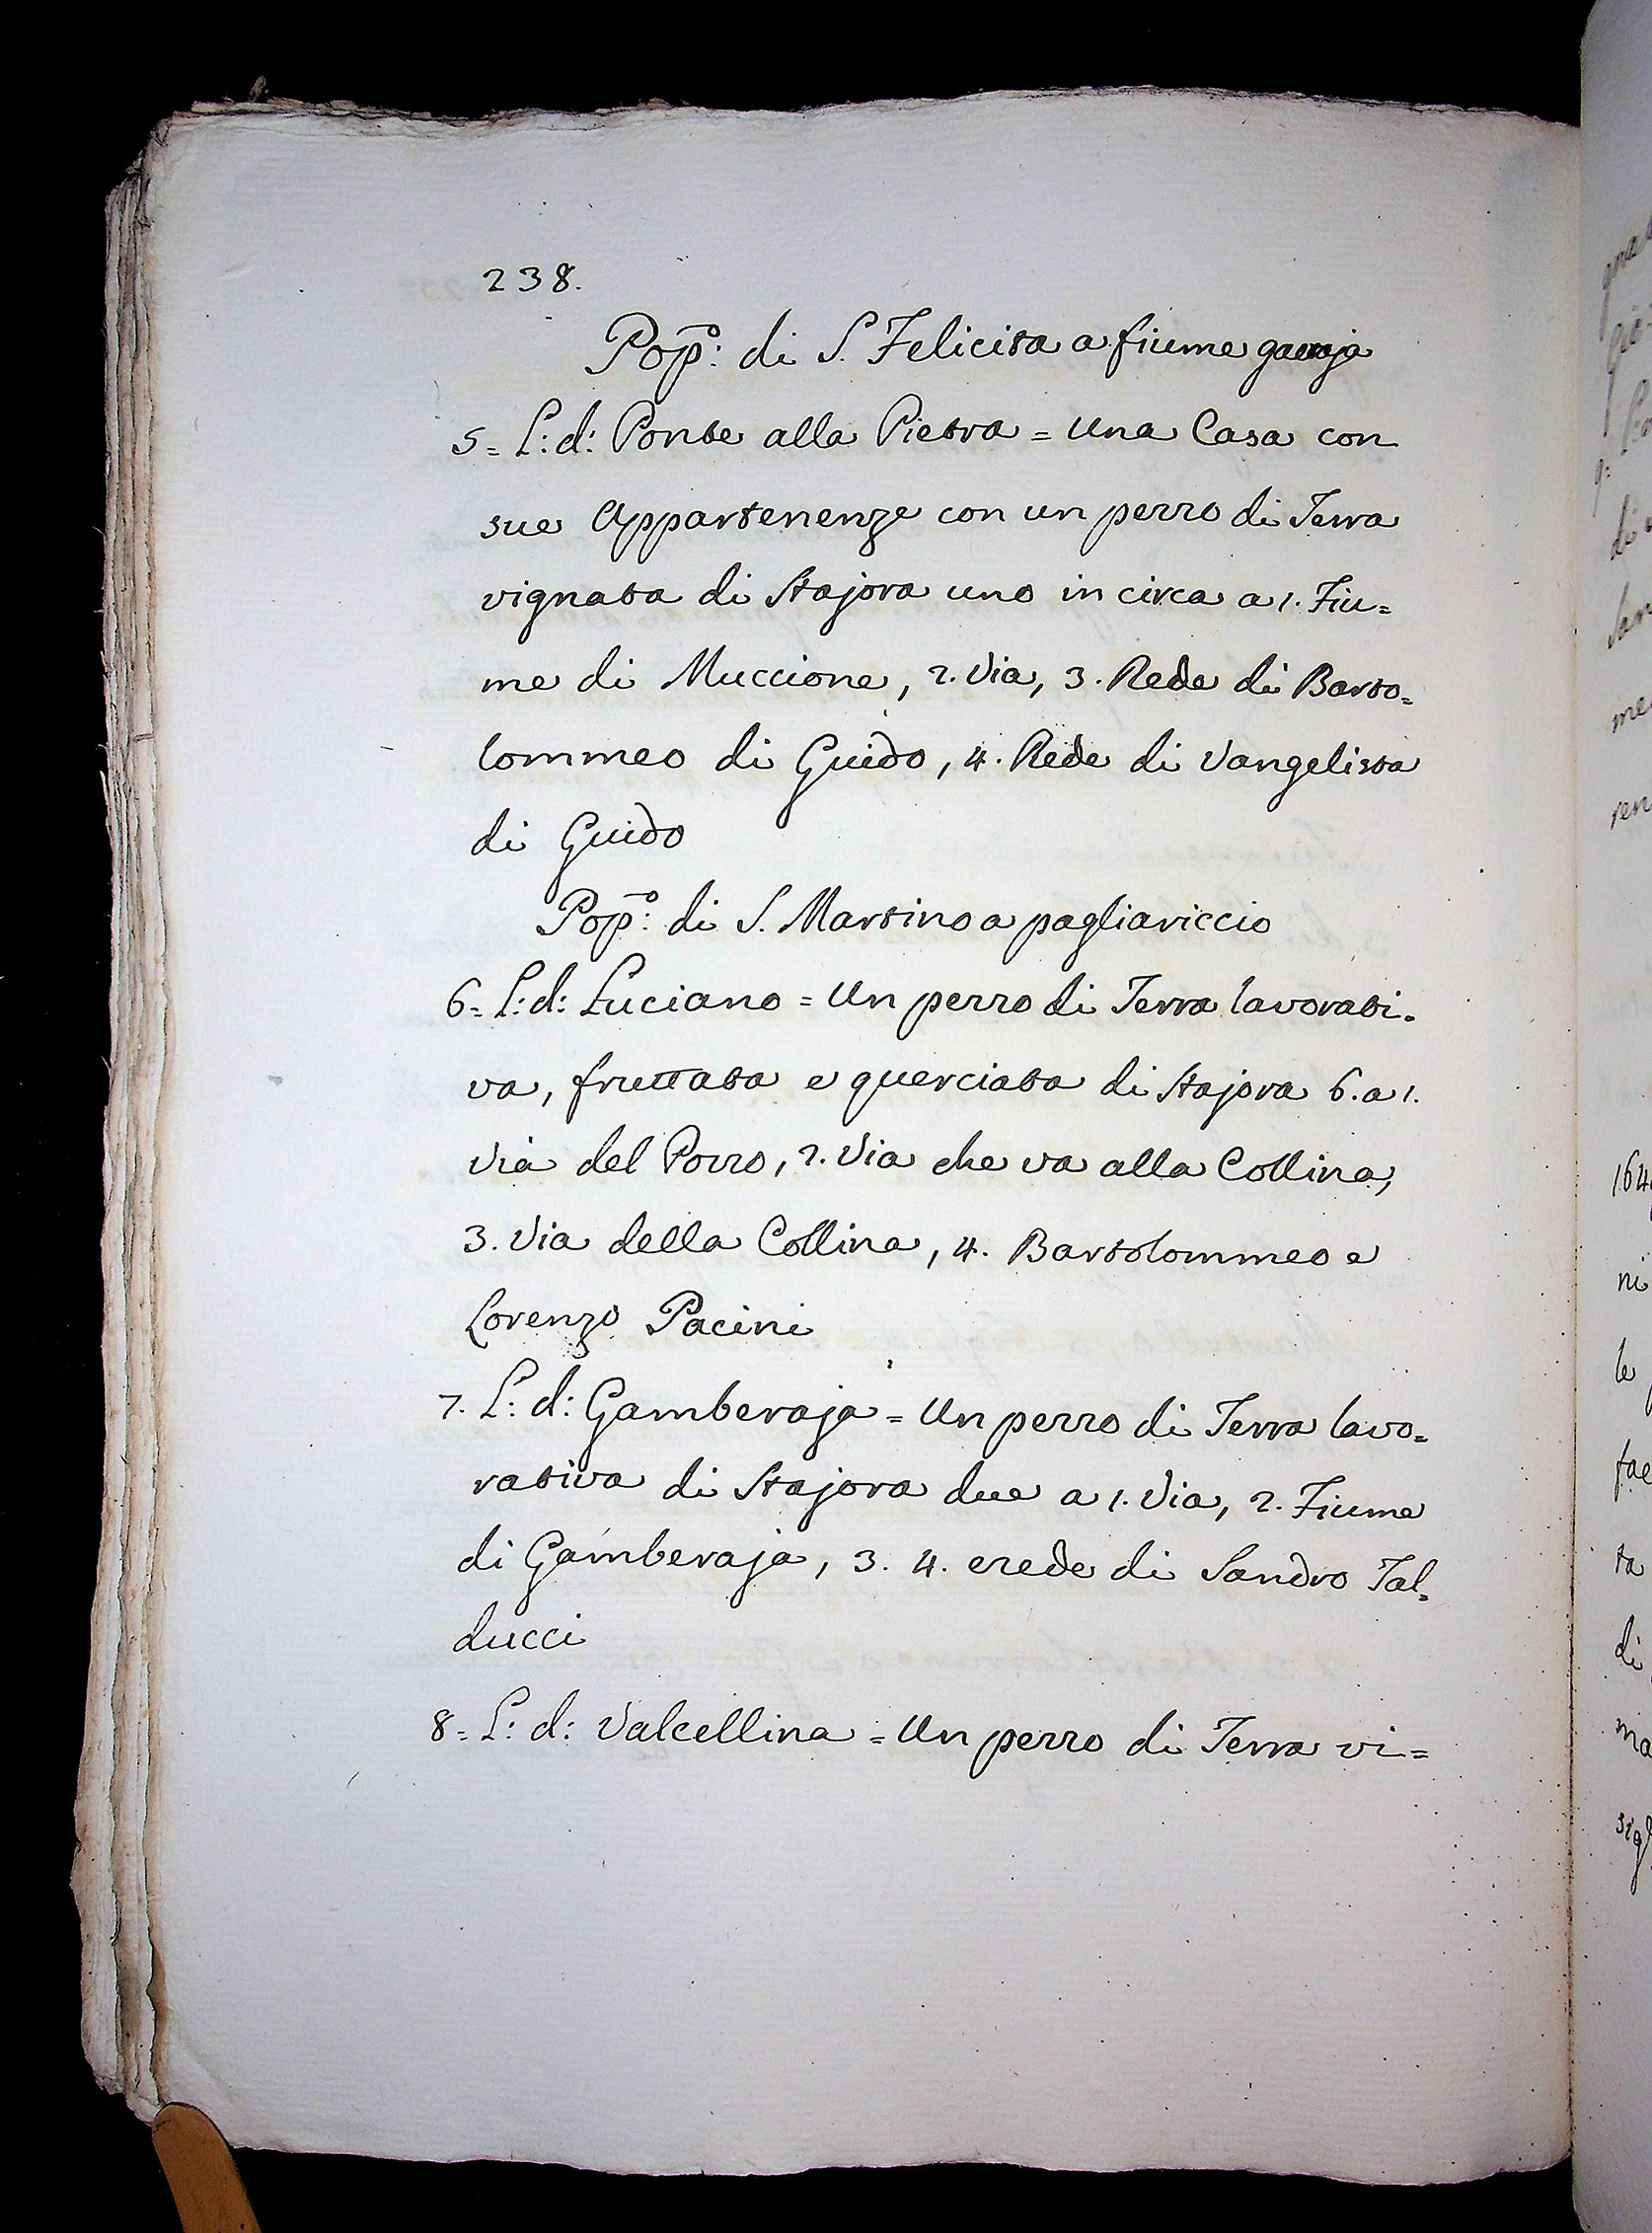 238.
Pop̄o: di S. Felicita a fiume
5= L: d: Ponte alla Pietra = Una Casa con
sue Appartenenze con un pezzo di Terra
vignata di Stajora uno in circa a 1. Fiu=
me di Muccione, 2. Via, 3. Rede di Barto=
lommeo di Guido, 4. Rede di Vangelista
di Guido
Pop̄o: di S. Martino a pagliariccio
6= L: d: Luciano = Un pezzo di Terra lavorati=
va, fruttata e querciata di Stajora 6. a 1.
Via del Pozzo, 2. Via che va alla Collina,
3. Via della Collina, 4. Bartolommeo e
Lorenzo Pacini
7. L: d: Gamberaja = Un pezzo di Terra lavo=
rativa di Stajora due a 1. Via, 2. Fiume
di Gamberaja, 3. 4. erede di Sandro Tal=
ducci
8= L: d: Valcellina = Un pezzo di Terra vi=